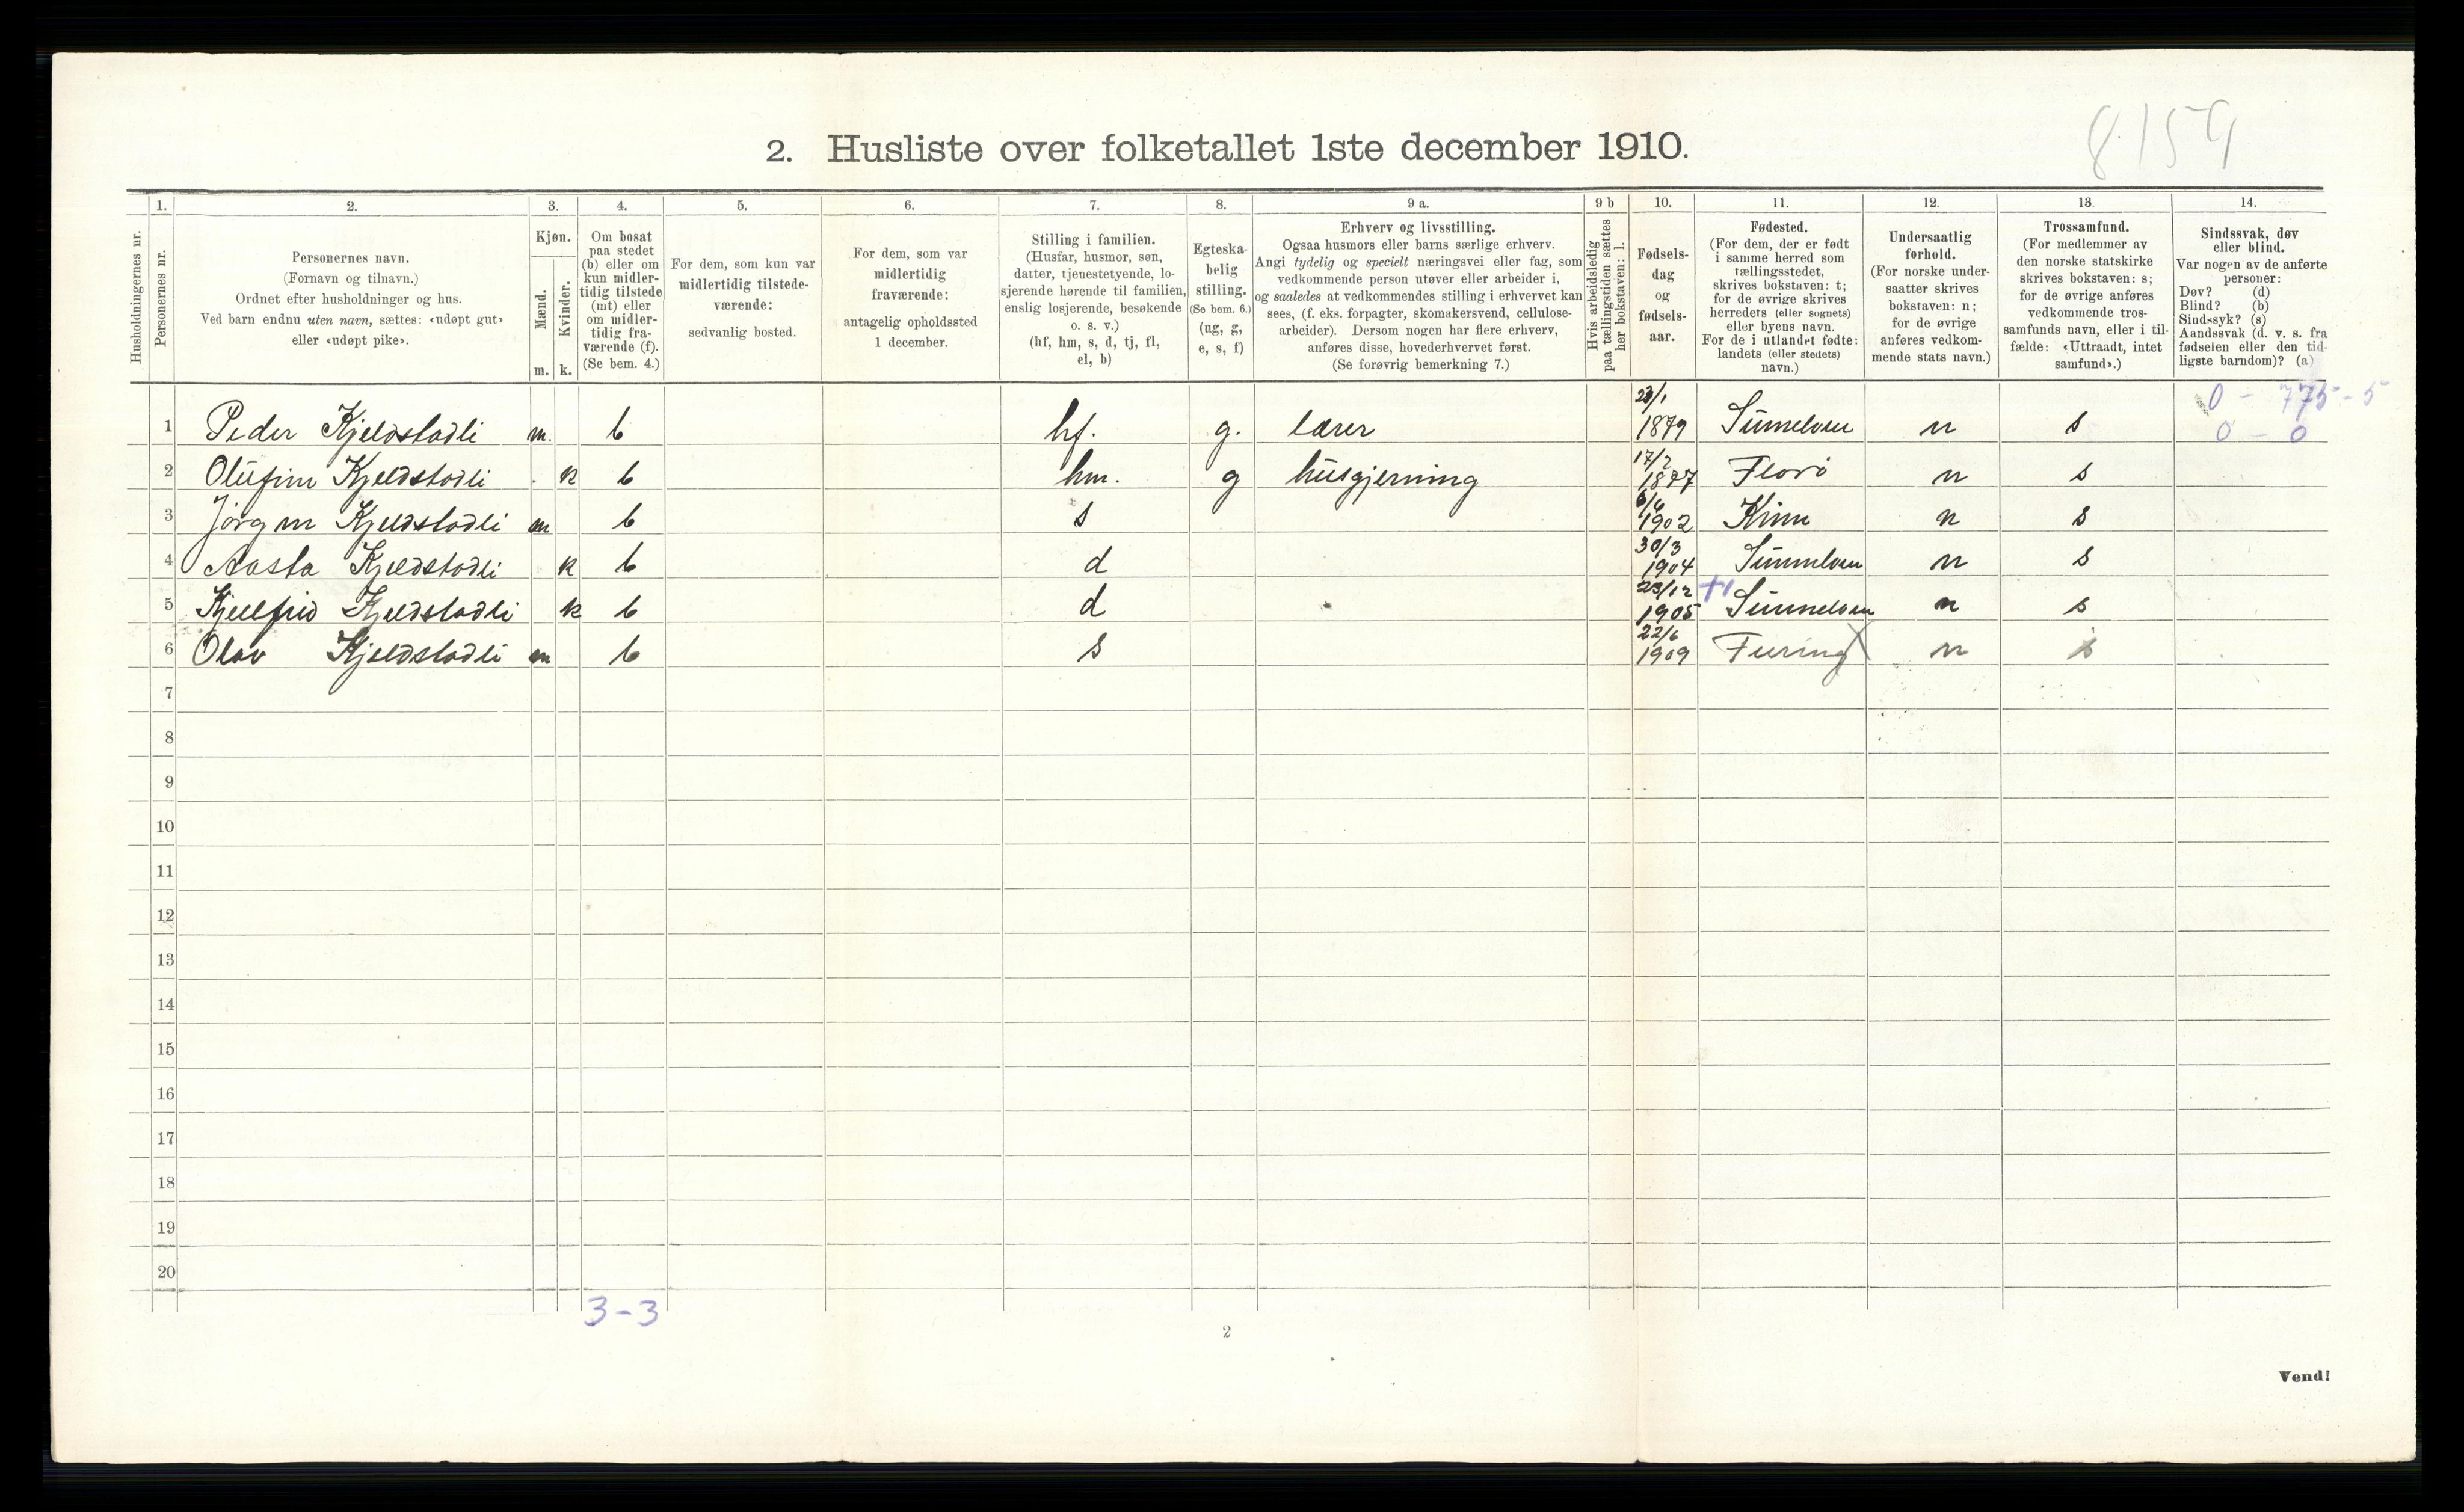 8159
2. Husliste over folketallet 1ste december 1910.
Husholdningernes nr.
1.
Personernes nr.
2.
Personernes navn.
(Fornavn og tilnavn.)
Ordnet efter husholdninger og hus.
Ved barn endnu uten navn, sættes: «udøpt gut»
eller «udøpt pike».
3.
Kjøn.
Mænd.
Kvinder.
m. k.
4.
Om bosat
paa stedet
(b) eller om
kun midler-
tidig tilstede
(mt) eller
om midler-
tidig fra-
værende (f).
(Se bem. 4.)
5.
For dem, som kun var
midlertidig tilstede-
værende:
sedvanlig bosted.
6.
For dem, som var
midlertidig
fraværende:
antagelig opholdssted
1 december.
7.
Stilling i familien.
(Husfar, husmor, søn,
datter, tjenestetyende, lo-
sjerende hørende til familien,
enslig losjerende, besøkende
o. s. v.)
(hf, hm, s, d, tj, fl,
el, b)
8.
Egteska-
belig
stilling.
(Se bem. 6.)
(ug, g,
e, s, f)
9 a.
Erhverv og livsstilling.
Ogsaa husmors eller barns særlige erhverv.
Angi tydelig og specielt næringsvei eller fag, som
vedkommende person utøver eller arbeider i,
og saaledes at vedkommendes stilling i erhvervet kan
sees, (f. eks. forpagter, skomakersvend, cellulose-
arbeider). Dersom nogen har flere erhverv,
anføres disse, hovederhvervet først.
(Se forøvrig bemerkning 7.)
9 b
Hvis arbeidsledig
paa tællingstiden sættes
her bokstaven: l.
10.
Fødsels-
dag
og
fødsels-
aar.
11.
Fødested.
(For dem, der er født
i samme herred som
tællingsstedet,
skrives bokstaven: t;
for de øvrige skrives
herredets (eller sognets)
eller byens navn.
For de i utlandet fødte:
landets (eller stedets)
navn.)
12.
Undersaatlig
forhold.
(For norske under-
saatter skrives
bokstaven: n;
for de øvrige
anføres vedkom-
mende stats navn.)
13.
Trossamfund.
(For medlemmer av
den norske statskirke
skrives bokstaven: s;
for de øvrige anføres
vedkommende tros-
samfunds navn, eller i til-
fælde: «Uttraadt, intet
samfund».)
14.
Sindssvak, døv
eller blind.
Var nogen av de anførte
personer:
Døv? (d)
Blind? (b)
Sindssyk? (s)
Aandssvak (d. v. s. fra
fødselen eller den tid-
ligste barndom)? (a)
0 - 775-5
0 - 0
1 Peder Kjeldstadli m. b hf. g. lærer 23/1 1879 Sunnelven n s
2 Olufine Kjeldstadli k b hm. g husgjerning 17/2 1877 Florø n s
3 Jørgen Kjeldstadli m b s 6/6 1902 Kinn n s
4 Aasta Kjeldstadli k b d 30/3 1904 Sunnelven n s
5 Kjellfrid Kjeldstadli k b d 23/12 1905 Sunnelven n s
6 Olav Kjeldstadli m b s 22/6 1909 n s
7
8
9
10
11
12
13
14
15
16
17
18
19
20
3-3
2
Vend!